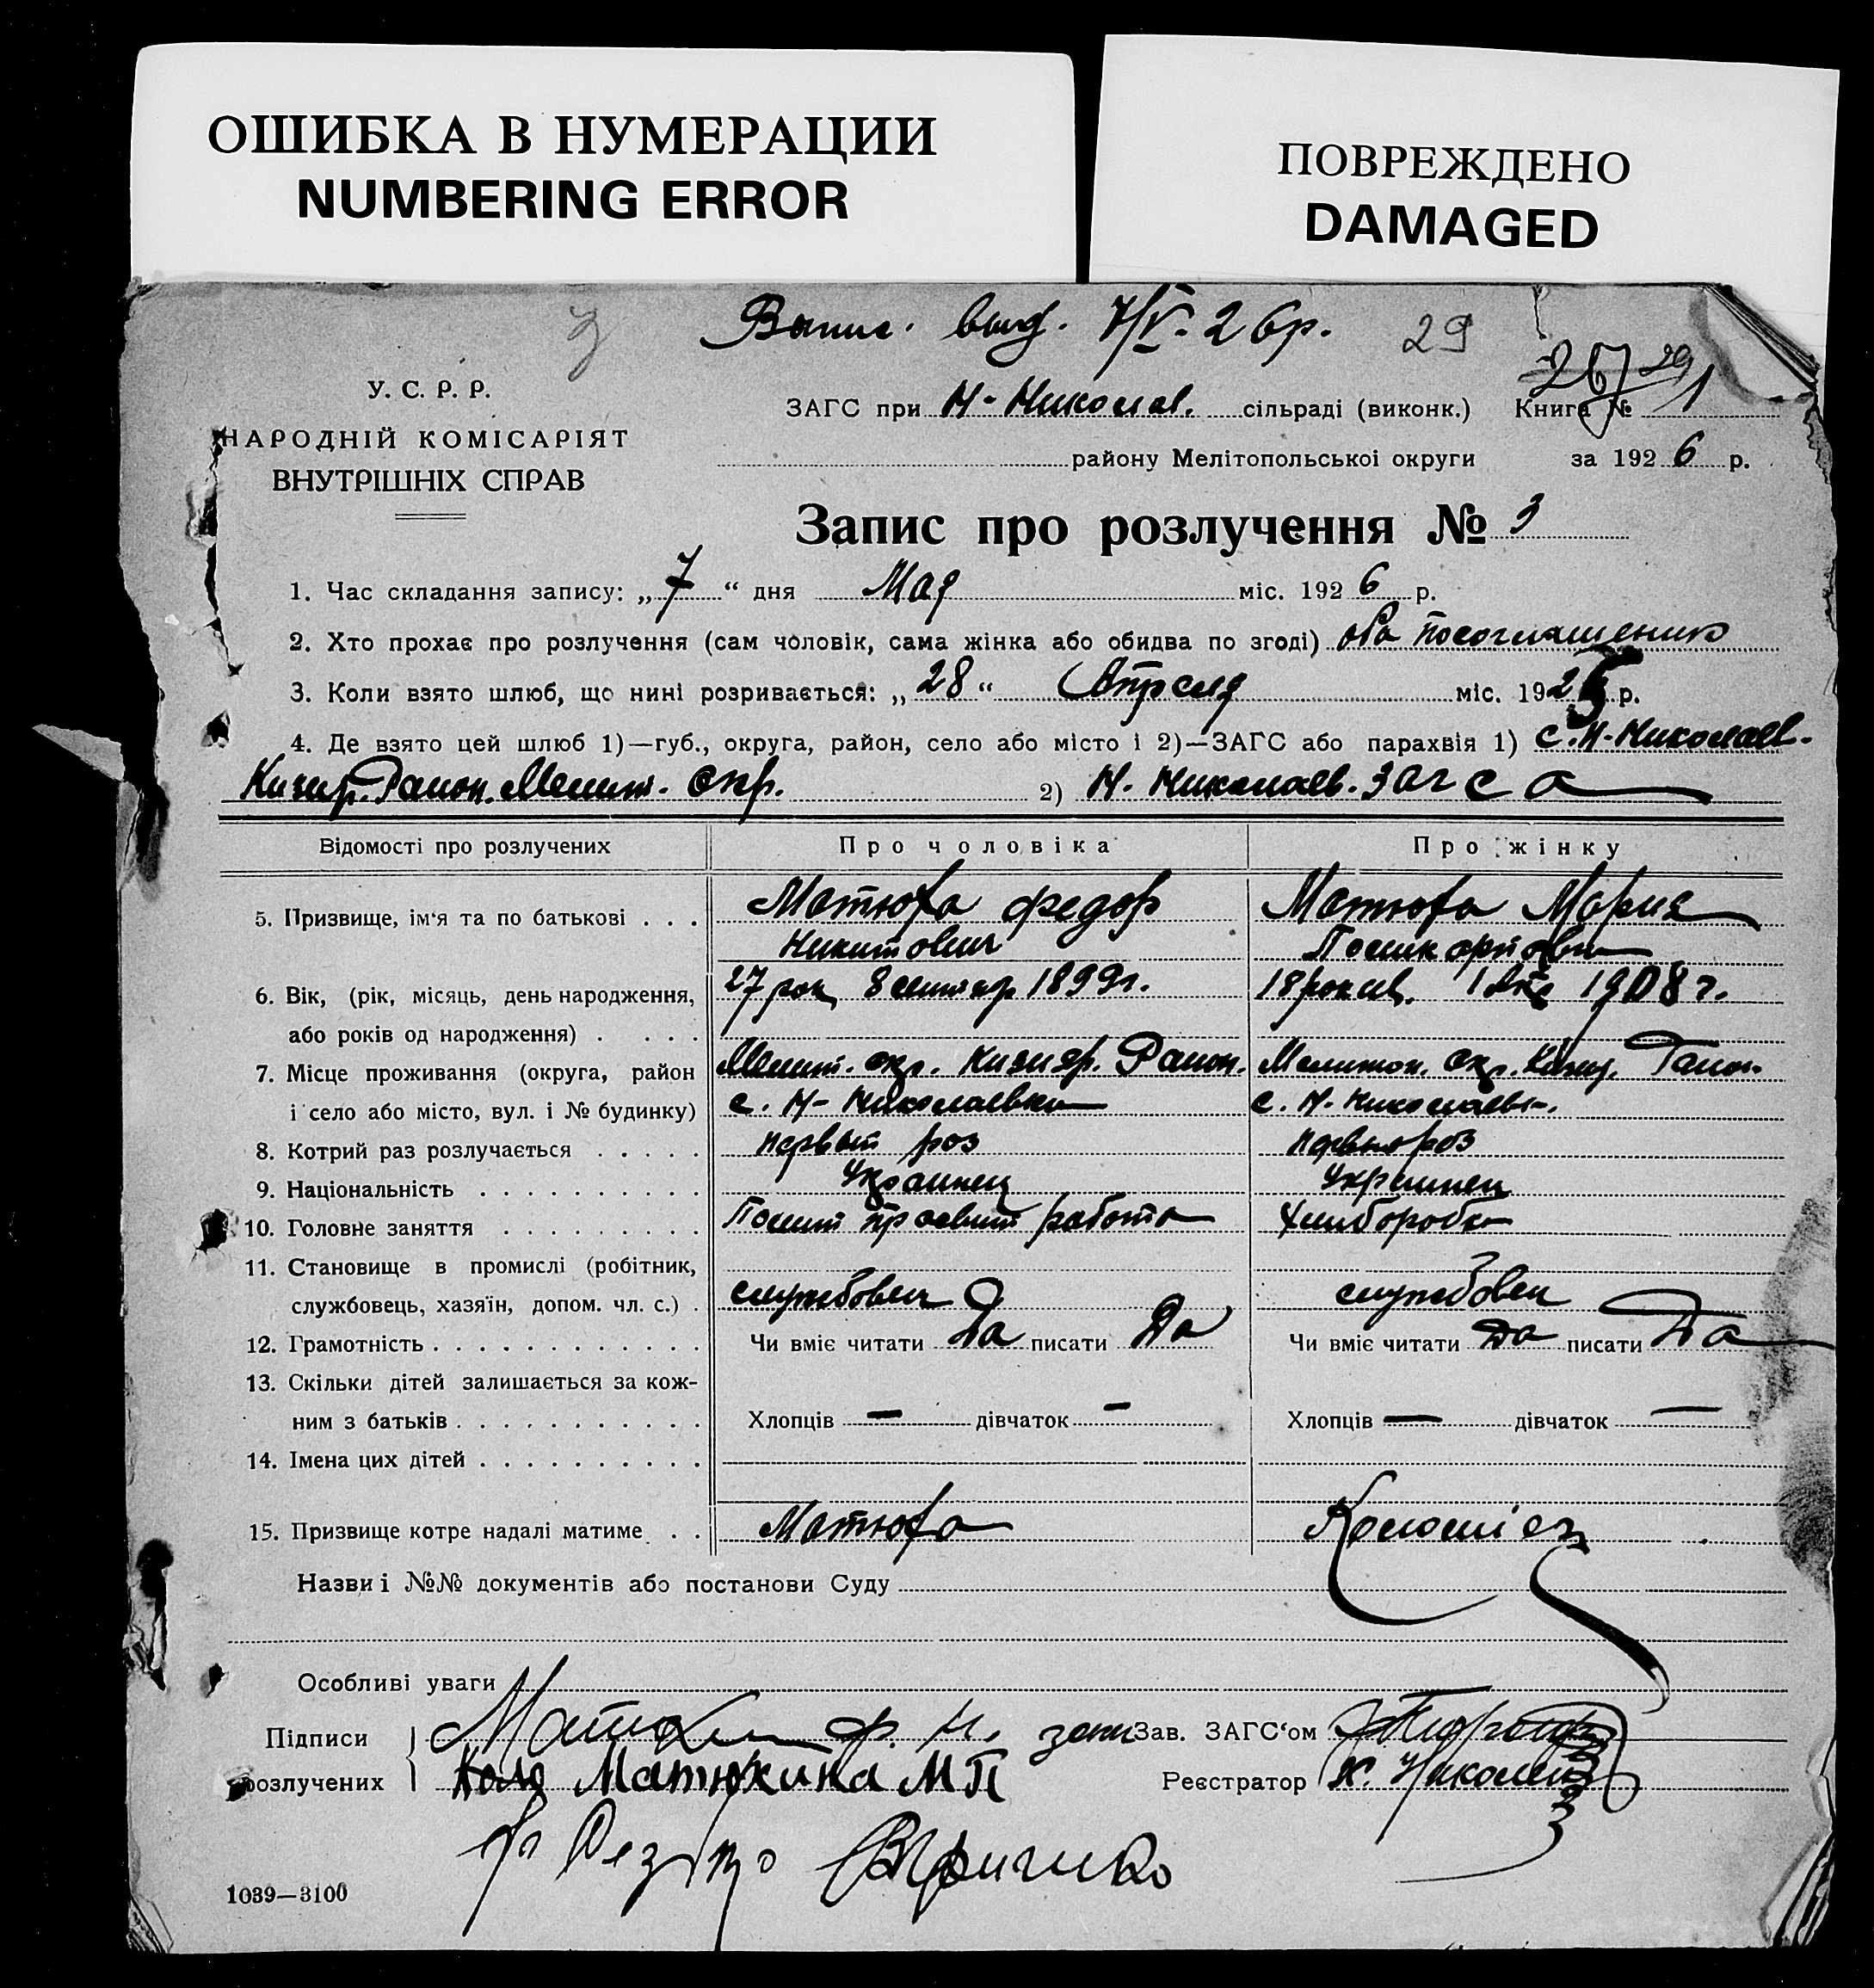 ОШИБКА В НУМЕРАЦИИ
NUMBERING ERROR
ПОВРЕЖДЕНО
DAMAGED
Выпис. выд. 7/V-26р. 29
У. С. Р. Р.
НАРОДНІЙ КОМІСАРІЯТ
ВНУТРІШНІХ СПРАВ
ЗАГС при Н-Николав. сільраді (виконк.) Книга № 1
району Мелітопольської округи за 1926 р.
Запис про розлучення № 3
1. Час складання запису: „7“ дня Мая міс. 1926 р.
2. Хто прохає про розлучення (сам чоловік, сама жінка або обидва по згоді) оба посоглашению
3. Коли взято шлюб, що нині розривається: „28“ Апреля міс. 1925 р.
4. Де взято цей шлюб 1)—губ., округа, район, село або місто і 2)—ЗАГС або парахвія 1) с. Н-Николаев.
Кизир. Район. Мелит. Окр. 2) Н. Николаев. Загса
Відомості про розлучених Про чоловіка Про жінку
5. Призвище, ім'я та по батькові . . . Матюха Федор Матюха Мария
Никитович
6. Вік, (рік, місяць, день народження, 27 рок 8 сентяр 1899г. 18 роков. 1908 г.
або років од народження) . . . .
7. Місце проживання (округа, район Мелит. окр. Кизияр. Район. Мелитоп. Окр. Кизир. Район.
і село або місто, вул. і № будинку) с. Н-Николаевка с. Н. Николаевк.
8. Котрий раз розлучається . . . . . первый раз первый раз
9. Національність . . . . . . . . . . Украинец Украинец
10. Головне заняття . . . . . . . . . Полит просвит работа Хлиборобка
11. Становище в промислі (робітник,
службовець, хазяїн, допом. чл. с.) . службовец службовец
12. Грамотність . . . . . . . . . . . . Чи вміє читати Да писати Да Чи вміє читати Да писати Да
13. Скільки дітей залишається за кож-
ним з батьків . . . . . . . . . . . Хлопців — дівчаток — Хлопців — дівчаток —
14. Імена цих дітей . . . . . . . . . .
15. Призвище котре надалі матиме . . Матюха Коломіец
Назви і №№ документів або постанови Суду
Особливі уваги
Підписи Ф. Н. Зав. ЗАГС'ом
розлучених Матюхина МП Реєстратор
1039—3100